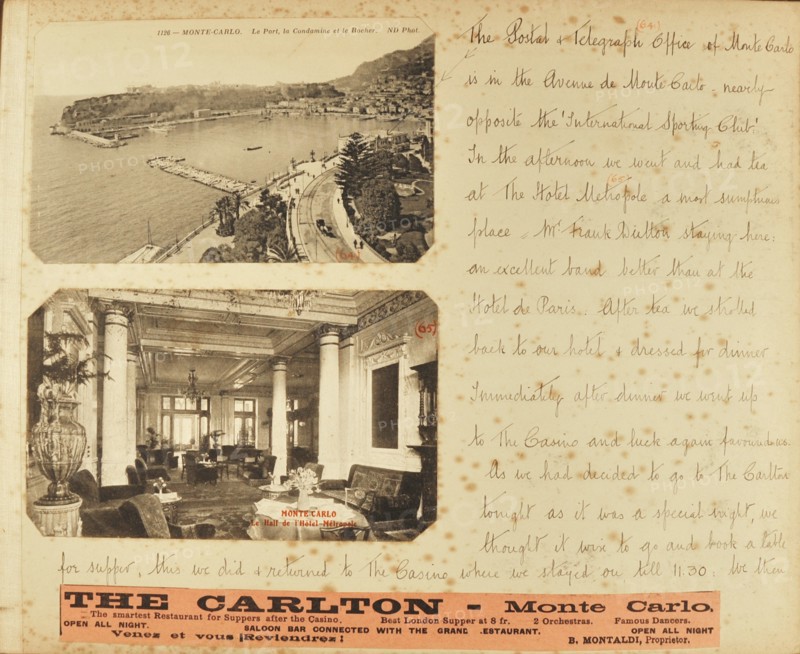 1126 — MONTE-CARLO. Le Port, la Condamine et le Rocher. ND Phot.
(64)
(65)
MONTE-CARLO
Le Hall de l'Hôtel Métropole
(64)
The Postal & Telegraph Office of Monte Carlo
is in the Avenue de Monte Carlo. nearly
opposite the 'International Sporting Club.'
In the afternoon we went and had tea
(65)
at The Hotel Metropole a most sumptuous
place. Mr Frank staying here:
an excellent band better than at the
Hotel de Paris. After tea we strolled
back to our hotel & dressed for dinner
Immediately after dinner we went up
to The Casino and luck again favoured us.
As we had decided to go to The Carlton
tonight as it was a special night, we
thought it wise to go and book a table
for supper, this we did & returned to The Casino where we stayed on till 11.30: We then
THE CARLTON - Monte Carlo.
The smartest Restaurant for Suppers after the Casino. Best London Supper at 8 fr. 2 Orchestras. Famous Dancers.
OPEN ALL NIGHT. SALOON BAR CONNECTED WITH THE GRAND .ESTAURANT. OPEN ALL NIGHT
Venez et vous ¡Reviendrez! B. MONTALDI, Proprietor.